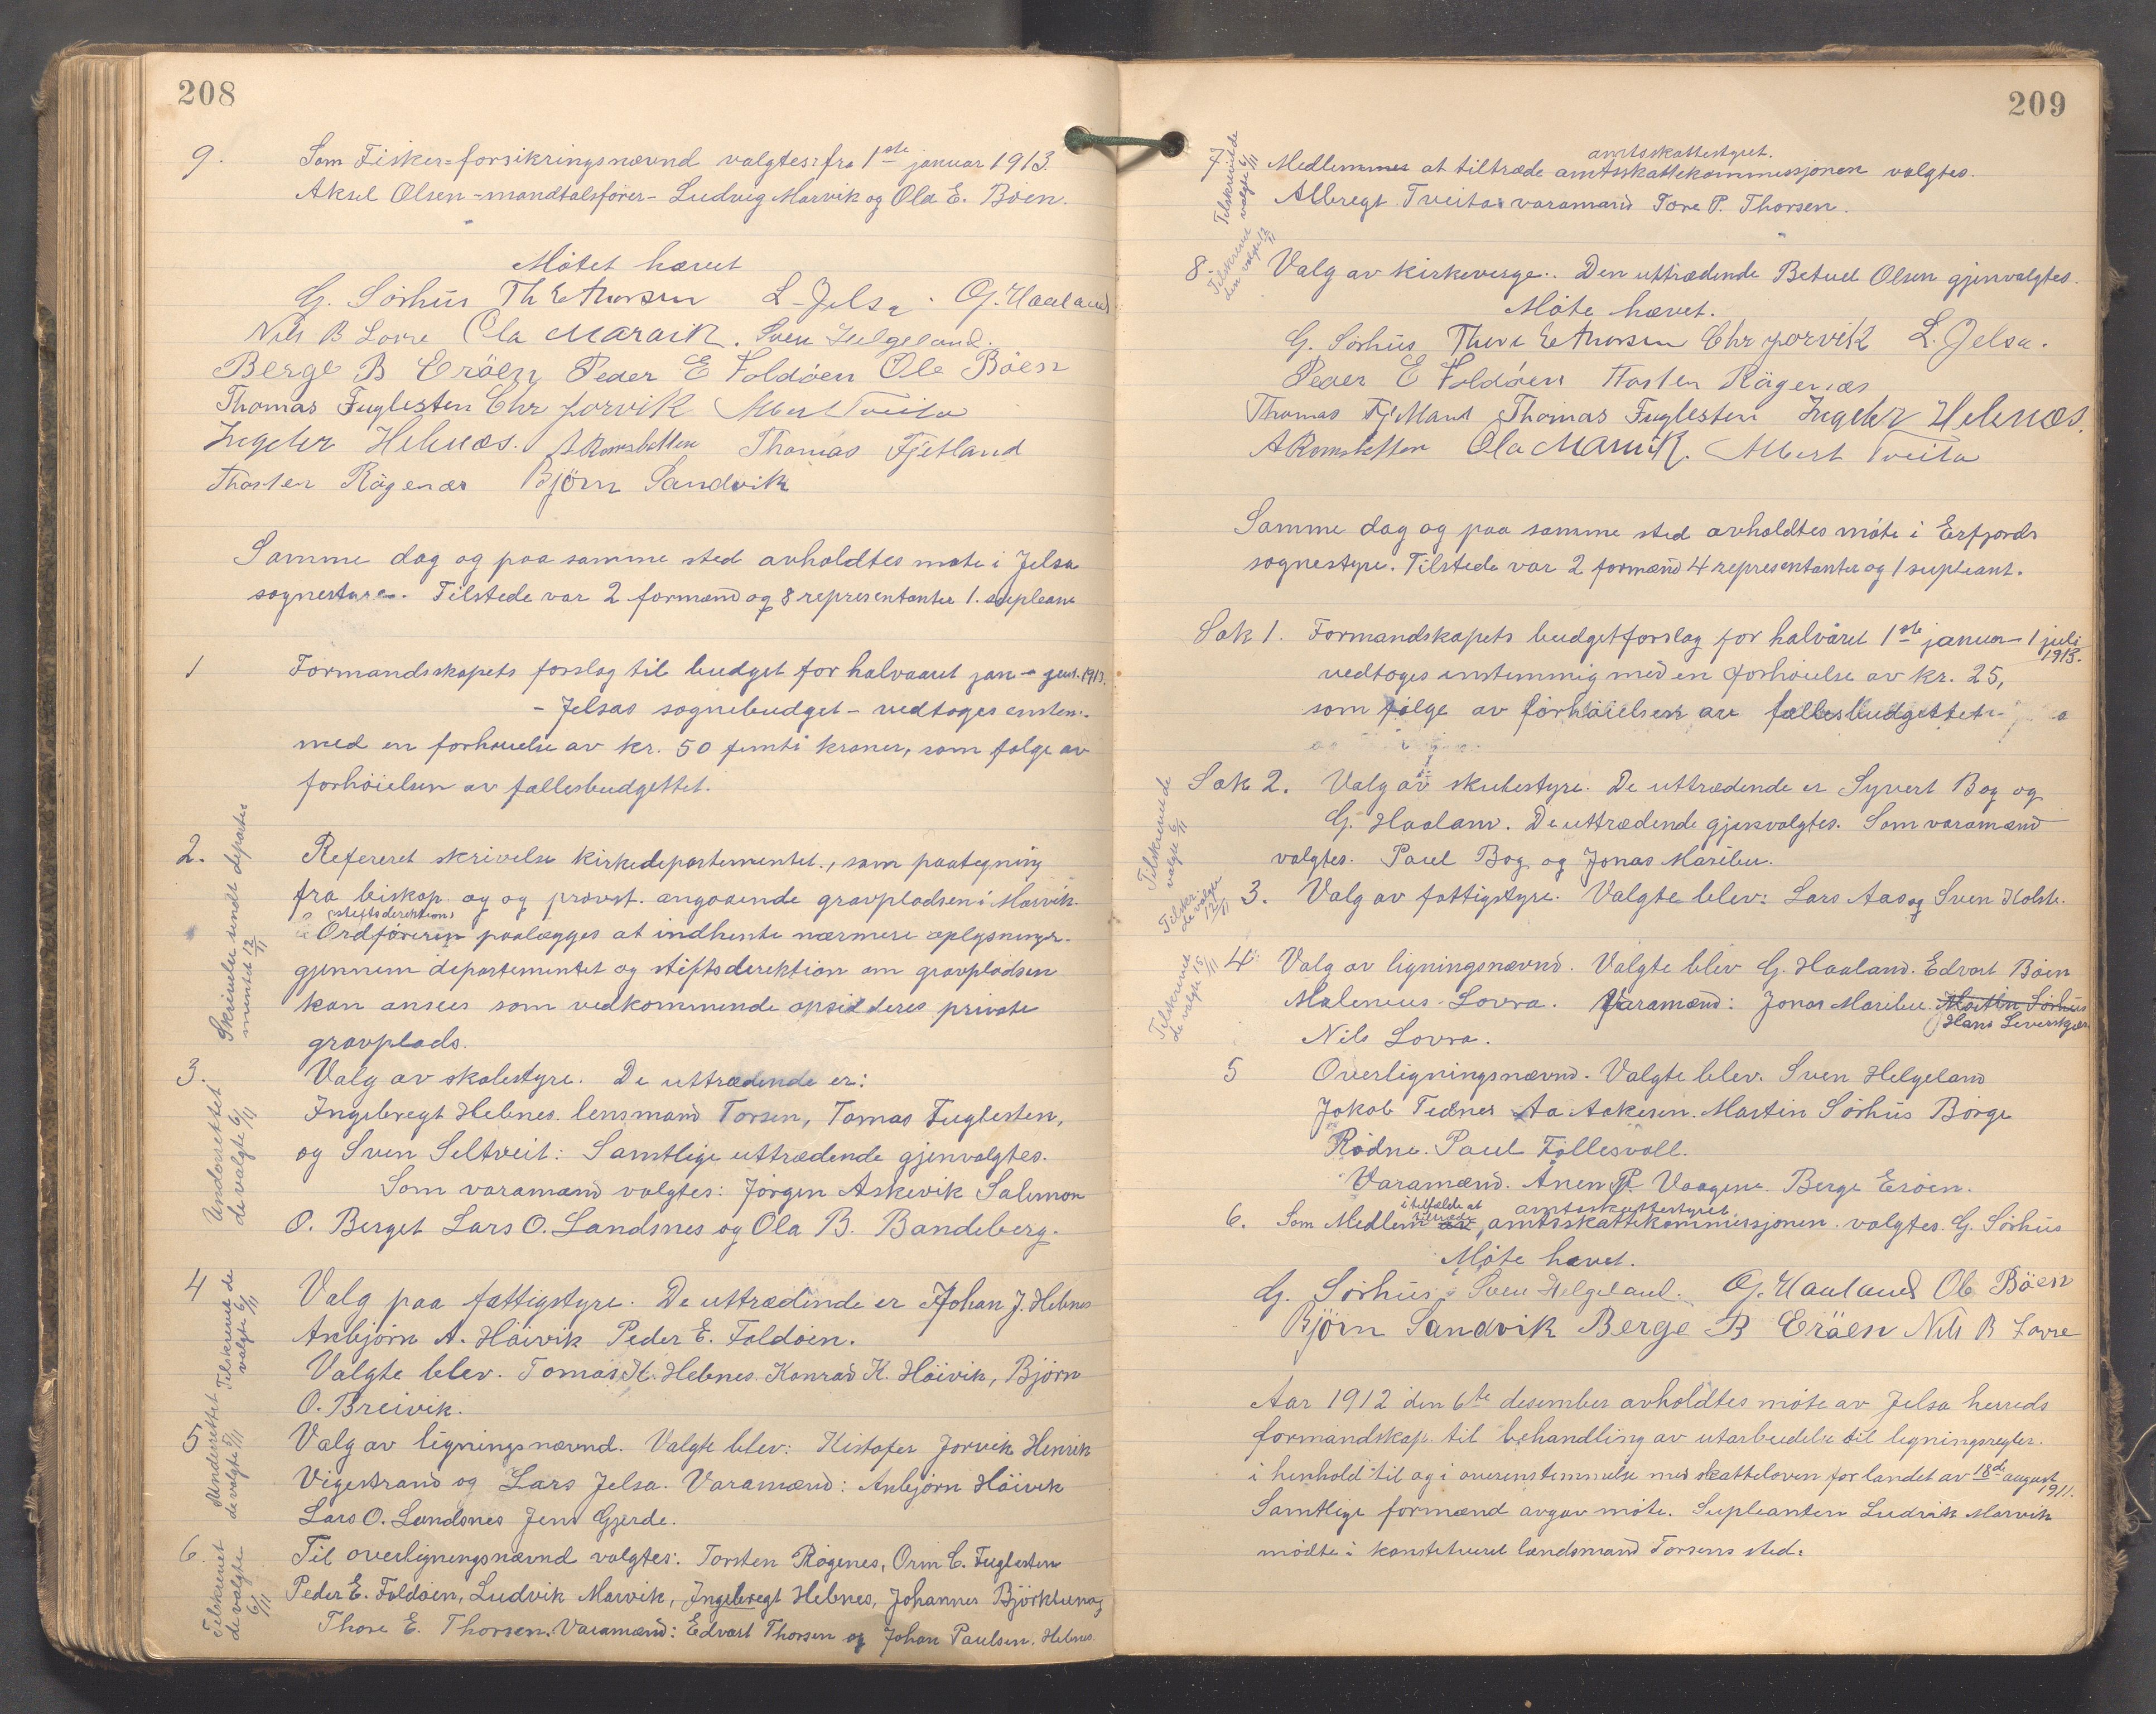 208
9. Som Fisker=forsikringsnævnd valgtes: fra 1ste januar 1913.
Aksel Olsen - mandtalsfører - Ludvig Marvik og Ola E. Bøen.
Møtet hævet
G. Sørhus Th E Thorsen L. Jelsa. G. Haaland
Nils B Lovre Ola Marvik. Sven Helgeland.
Berge B Erøen Peder E Foldøen Ole Bøen
Thomas Fuglesten Chr Jorvik Albert Tveita
Ingebr Hebnes. A Romsbotten Thomas Fjetland
Thorsten Rägenæs Bjørn Sandvik
Samme dag og paa samme sted avholdtes møte i Jelsa
sognestyre. Tilstede var 2 formænd og 8 representanter 1. supleant
1 Formandskapets forslag til budget for halvaaret jan - juni 1913.
- Jelsas sognebudget - vedtoges enstem.
med en forhøielse av kr. 50 femti kroner, som følge av
forhøielsen av fællesbudgettet.
Skrivelse sendt departe
mentet 12/11
2. Refereret skrivelse kirkedepartementet., som paategning
fra biskop og og provst. angaaende gravpladsen i Marvik.
(stiftsdirektion)
Ordføreren paalægges at indhente nærmere oplysninger
gjennem departementet og stiftsdirektion om gravpladsen
kan ansees som vedkommende opsid deres private
gravplads.
Underrettet
de valgte 6/11
3. Valg av skolestyre. De uttrædende er:
Ingebregt Hebnes. lensmand Torsen, Tomas Fuglesten,
og Sven Seltveit: Samtlige uttrædende gjenvalgtes.
Som varamænd valgtes: Jørgen Askevik Salemon
O. Berget Lars O. Landsnes og Ola B. Bandeberg.
Tilskrevet de
valgte 6/11
4 Valg paa fattigstyre. De uttrædende er Johan J. Hebnes
Anbjørn A. Høivik Peder E. Foldøen.
Valgte blev. Tomas K. Hebnes Konrad K. Høivik, Bjørn
O. Breivik.
Underrettet
de valgte 6/11
5 Valg av ligningsnævnd. Valgte blev: Kistofer Jorvik Henrik
Vigestrand og Lars Jelsa. Varamænd: Anbjørn Høivik
Lars O. Landsnes Jens Gjerde.
Tilskrevet
de valgte
6/11
6. Til overligningsnævnd valgtes: Torsten Rägenes, Orm C. Fuglesten
Peder E. Foldøen, Ludvik Marvik, Ingebregt Hebnes, Johannes Björklund og
Thore E. Thorsen. Varamænd: Edvart Thorsen og Johan Paulsen. Hebnes.
209
Tilskrevet de
valgte 6/11
amtsskattestyret.
7 Medlemmer at tiltræde amtsskattekommissjonen valgtes.
Albregt Tveita varamand Tore P. Thorsen.
Tilskrevet
den valgte 12/11
8. Valg av kirkeverge. Den uttrædende Betuel Olsen gjenvalgtes.
Møte hævet.
G. Sørhus Thore E Thorsen Chr Jorvik L. Jelsa.
Peder E Foldøen Thorsten Rägenæs
Thomas Fjetland Thomas Fuglesten Ingebr Hebnes.
A Romsbotten Ola Marvik. Albert Tveita
Samme dag og paa samme sted avholdtes møte i Erfjords
sognestyre. Tilstede var 2 formænd 4 representanter og 1 supleant.
Sak 1. Formandskapets budgetforslag for halvåret 1ste januar - 1 juli
1913.
vedtoges enstemmig med en forhøielse av kr. 25,
som følge av forhøielsen av fællesbudgettet
Tilskrevet de
valgte 6/11
Sak 2. Valg av skolestyre. De uttrædende er Syvert Bog og
G. Haaland. De uttrædende gjenvalgtes. Som varamænd
valgtes. Paul Bog og Jonas Maribu.
Tilskr.
de valgte
12/11
3. Valg av fattigstyre. Valgte blev: Lars Aas og Sven Holste.
Tilskrevet
de valgte 15/11
4 Valg av ligningsnævnd. Valgte blev G. Haaland. Edvart Bøen
Malenius Lovra. Varamænd: Jonas Maribu. Martin Sørhus
Hans Leverskjær
Nils Lovra.
5 Overligningsnævnd. Valgte blev. Sven Helgeland
Jakob Tednes Aa Aakesen. Martin Sørhus Børge
Rødne. Paul Føllesvoll.
Varamænd. Anen P. Vaagene. Berge Erøen.
i tilfælde at
tiltræde amtsskattestyret
6. Som Medlem av amtsskattekommissjonen. valgtes. G. Sørhus
Møte hævet.
G. Sørhus Sven Helgeland. G. Haaland Ole Bøen
Bjørn Sandvik Berge B Erøen Nils B Lovre
Aar 1912 den 6te desember avholdtes møte av Jelsa herreds
formandskap til behandling av utarbeidelse til ligningsregler.
i henhold til og i overenstemmelse med skatteloven for landet av 18de august
1911.
Samtlige formænd avgav møte. Supleanten Ludvik Marvik
mødte i konstitueret lændsmand Torsens sted.